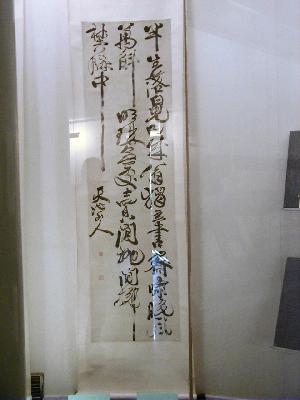 半生落魄已成翁獨立書齋嘯晚風
萬斛明珠無處賣閒拋閒擲
野藤中
天池山人